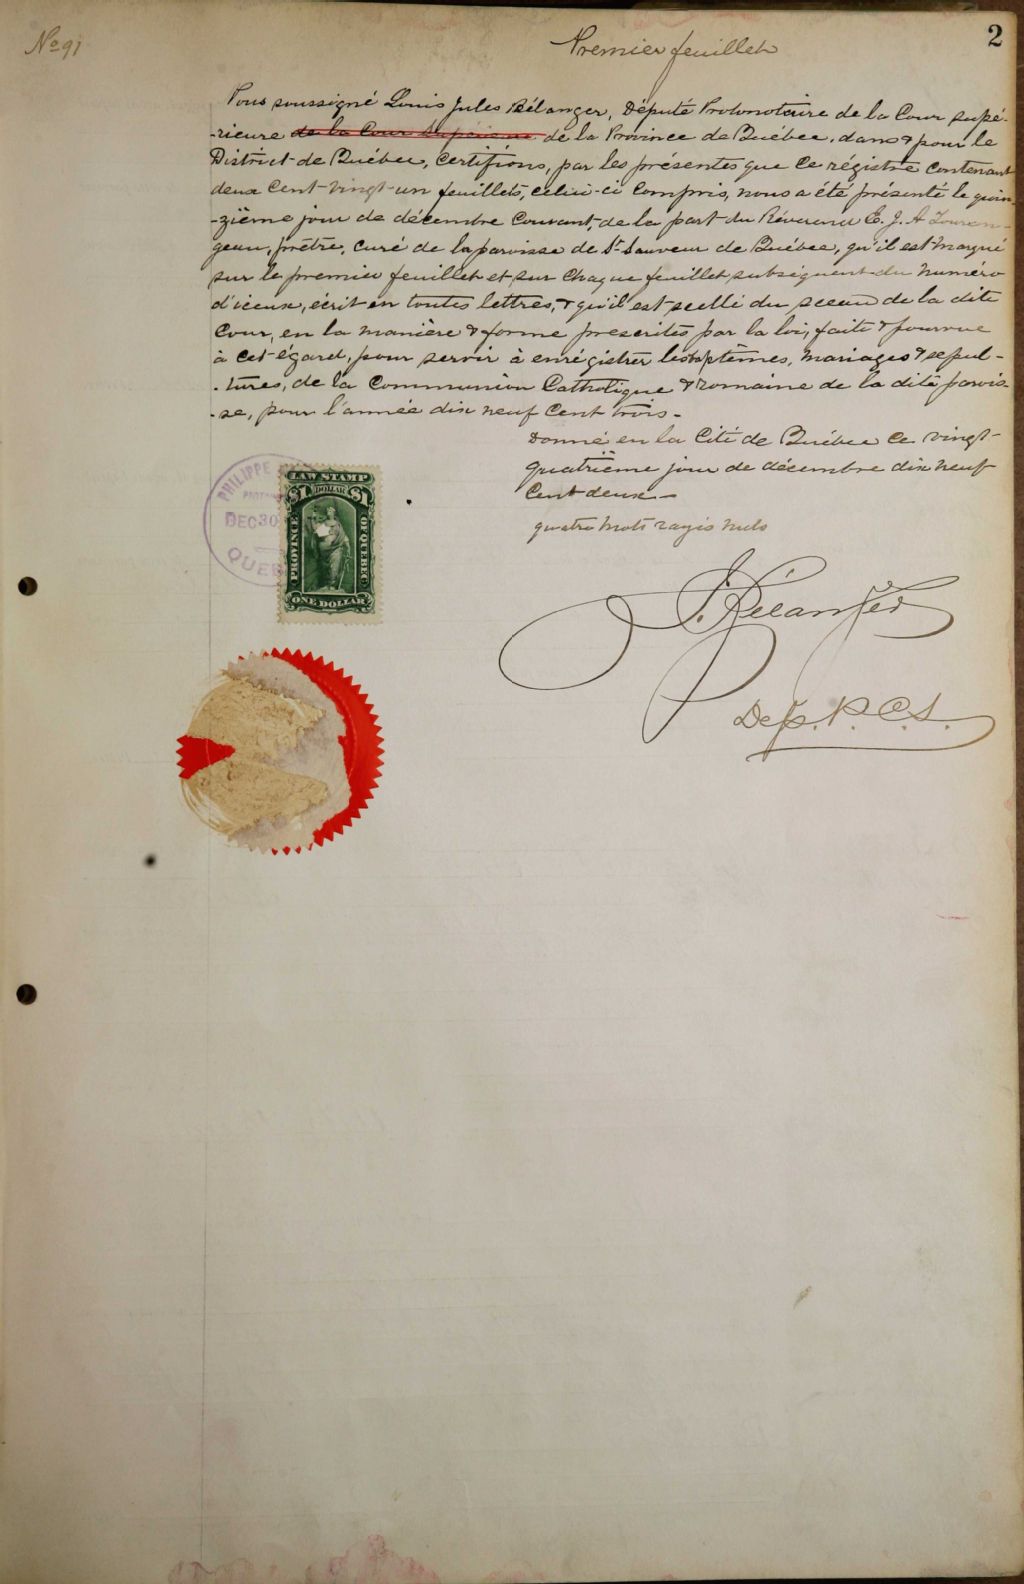 No 91
Premier feuillet
2
Nous soussigné Louis Jules Bélanger, Député Protonotaire de la Cour supé-
-rieure de la Cour Supérieure de la Province de Québec, dans & pour le
District de Québec, certifions, par les présentes que ce régistre contenant
deux cent vingt-un feuillets, celui-ci compris, nous a été présenté le quin-
-zième jour de décembre courant, de la part du Révérend E. J. A Touran-
geau, prêtre, curé de la paroisse de St Sauveur de Québec, qu'il est marqué
sur le premier feuillet et sur chaque feuillet subséquent du numéro
d'iceux, écrit en toutes lettres, & qu'il est scellé du sceau de la dite
Cour, en la manière & forme prescrites par la loi, faite & pourvue
à cet égard, pour servir à enrégistrer les baptêmes, mariages & sepul-
-tures, de la Communion Catholique & romaine de la dite parois-
-se, pour l'année dix neuf cent trois -
Donné en la Cité de Québec ce vingt-
quatrième jour de décembre dix neuf
cent deux -
quatre mots rayés nuls
PHILIPPE
DEC 30
QUEB
LAW STAMP
$1 DOLLAR $1
PROVINCE OF QUEBEC
ONE DOLLAR
J. Bélanger
Dep. P. C. S.